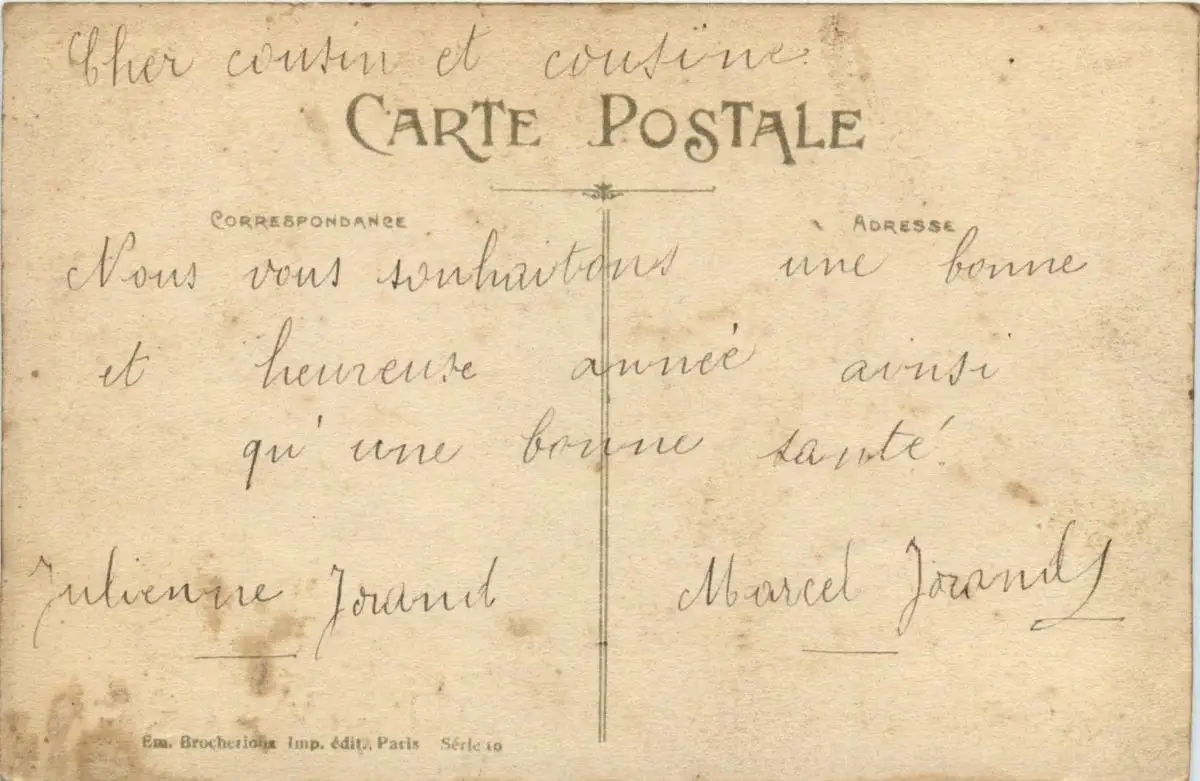 Cher cousin et cousine.
CARTE POSTALE
CORRESPONDANCE
ADRESSE
Nous vous souhaitons une bonne
et heureuse année ainsi
qu'une bonne santé.
Julienne Jorand
Marcel Jorand
Em. Brocherioux Imp. édit., Paris Série 10